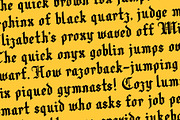 The quick brown fox jumps
sphinx of black quartz, judge m
Elizabeth's proxy waved off Mi
The quick onyx goblin jumps ov
dwarf. How razorback-jumping
six piqued gymnasts! Cozy lum
smart squid who asks for job pe